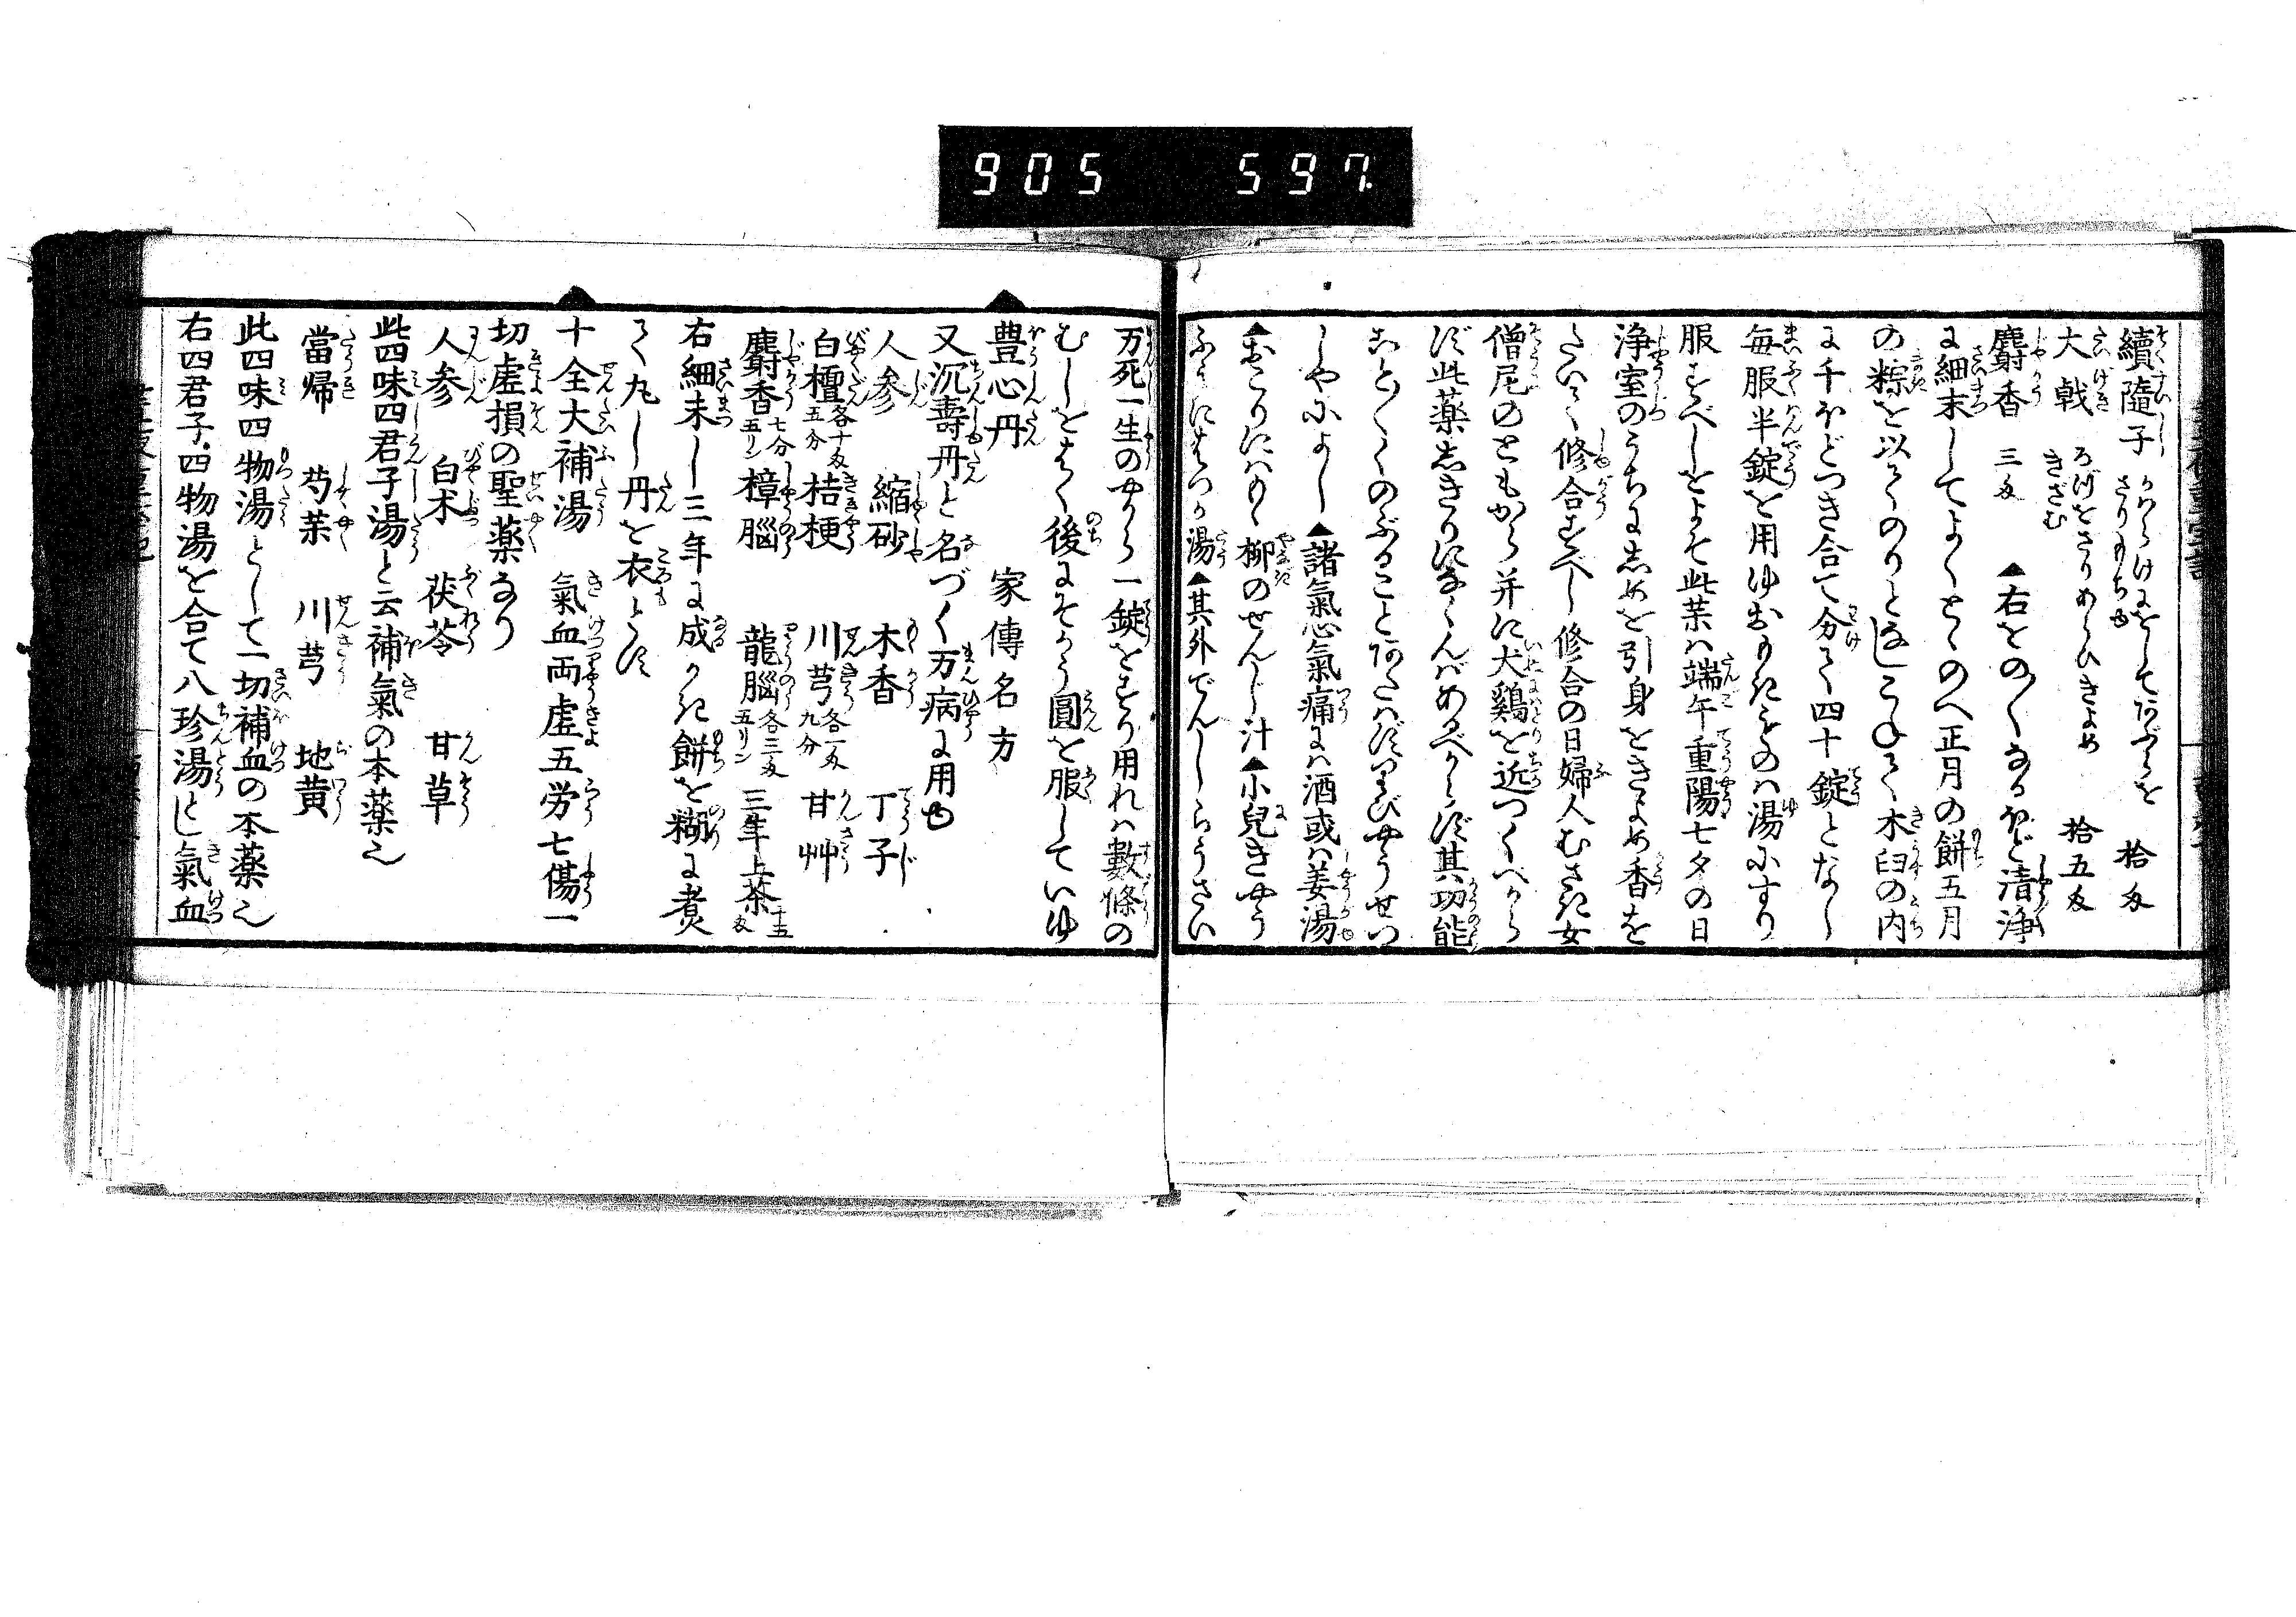 905 597
續隨子 かわらけにをして阿ぶらを さりもちゆ 拾匁
大戟 ろげをさりあらひきよめ きざむ 拾五匁
麝香 三匁 ▲右をの〱なるほど清浄
に細末してよくとゝのへ正月の餅五月
の粽を以てのりとなしこねて木臼の内
に千ほどつき合て分て四十錠となし
毎服半錠を用ゆおもきものハ湯にすり
服すべしをよそ此薬ハ端午重陽七夕の日
浄室のうちにしめを引身をきよめ香を
たいて修合すべし修合の日婦人むさき女
僧尼のともから并に犬鷄を近つくべから
ず此薬しきりになくんばあるべからず其功能
ことく〱のぶること阿たハず
しやによし▲諸氣心氣痛にハ酒或ハ姜湯
▲おこりにハ 柳のせんじ汁▲小兒きやう
湯▲其外でんしらうさい
万死一生のやから一錠をすり用れハ數條の
むしをはく後にそかう圓を服していゆ
豊心丹 家傳名方
又沉壽丹と名づく万病に用ゆ
人参 縮砂 木香 丁子
白檀各十匁五分 桔梗 川芎各一匁九分 甘艸
麝香七分五リン 樟腦 龍腦各三匁五リン 三年上茶十五匁
右細末し三年に成かき餅を糊に煮
て丸し丹を衣とす
十全大補湯 氣血両虚五労七傷一
切虚損の聖薬なり
人参 白朮 茯苓 甘草
此四味四君子湯と云補氣の本薬也
當帰 芍薬 川芎 地黄
此四味四物湯として一切補血の本薬也
右四君子四物湯を合て八珍湯とし氣血